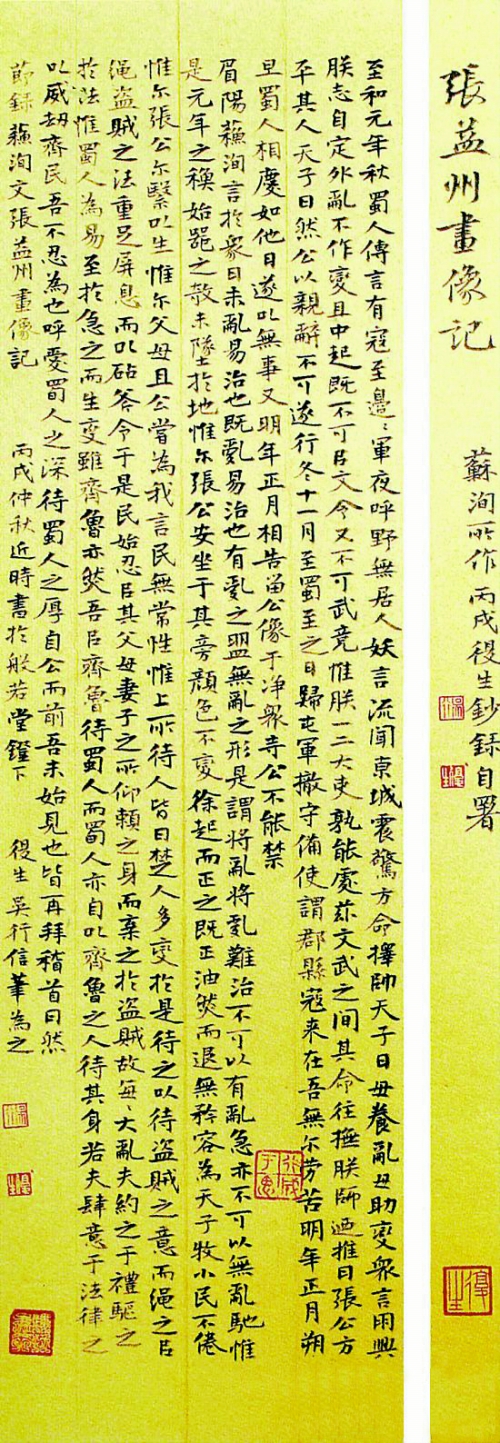 張益州畫像記
蘇洵所作丙戌復生鈔錄自署
至和元年秋蜀人傳言有寇至邊〻軍夜呼野無居人妖言流聞京城震驚方命擇帥天子曰毋養亂毋助變衆言朋興
朕志自定外亂不作變且中起既不可㠯文令又不可武竞惟朕一二大吏孰能處茲文武之間其命往撫朕師迺推曰張公方
平其人天子曰然公以親辭不可遂行冬十一月至蜀至之日歸屯軍撤守備使謂郡縣寇来在吾無尔勞苦明年正月朔
旦蜀人相慶如他日遂㠯無事又明年正月相告留公像于凈衆寺公不能禁
眉陽蘇洵言於衆曰未亂易治也既亂易治也有亂之萌無亂之形是謂將亂將亂難治不可以有亂急亦不可以無亂馳惟
是元年之穐始器之欹未墜於地惟尔張公安坐于其旁顏色不變徐起而正之既正油然而退無矜容為天子牧小民不倦
惟尔張公尔繄㠯生惟尔父母且公嘗為我言民無常性惟上所待人皆曰蜀人多變於是待之以待盜賊之意而繩之㠯
繩盜賊之法重足屏息而㠯砧答令于是民始忍㠯其父母妻子之所仰賴之身而棄之於盜賊故每〻大亂夫約之于禮驅之
於法惟蜀人為易至於急之而生變雖齊魯亦然吾㠯齊魯待蜀人而蜀人亦自㠯齊魯之人待其身若夫肆意于法律之
㠯威劫齊民吾不忍為也呼愛蜀人之深待蜀人之厚自公而前吾未始見也皆再拜稽首曰然
節錄蘇洵文張益州畫像記 丙戌仲秋近時書於般若堂鐙下 復生吳行信筆為之
復生